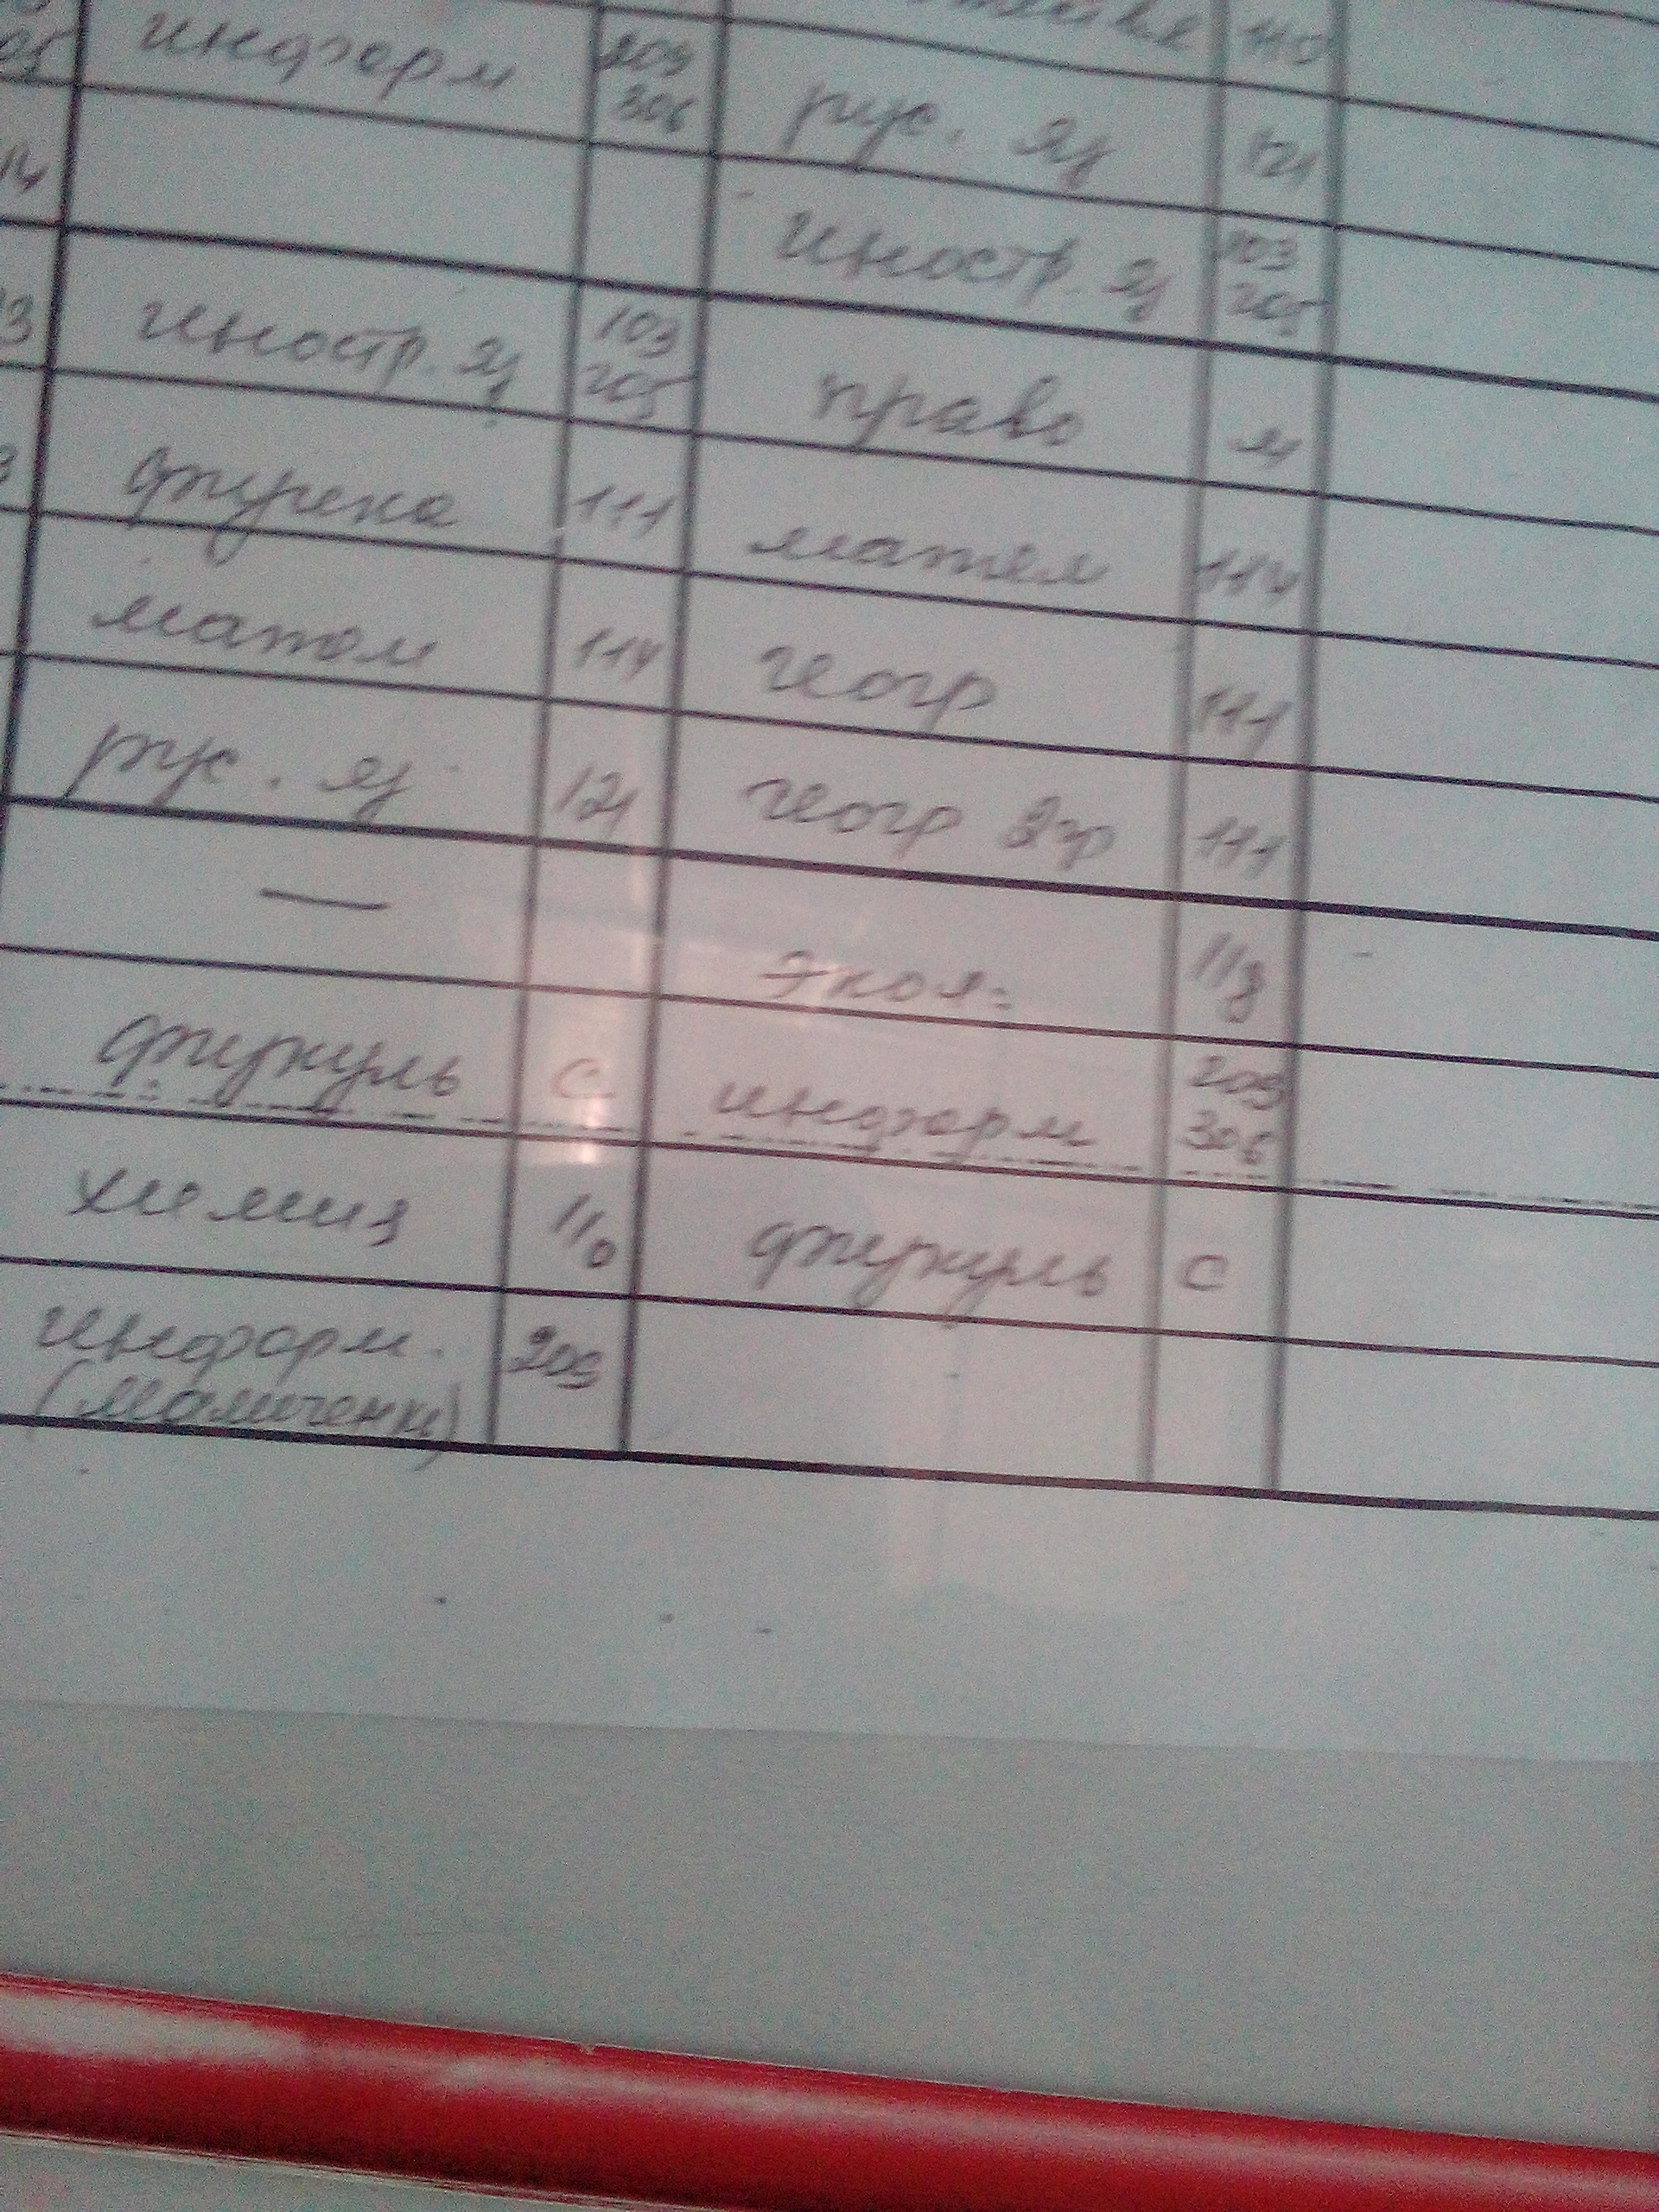 информ 209 306 рус. яз 121
иностр. яз 103 205
иностр. яз 103 205 право
физика 111 матем 114
матем 114 геогр 111
рус. яз 121 геогр 2гр 111
— экол. 118
физкуль С информ 209 306
химия 110 физкуль С
информ. 209